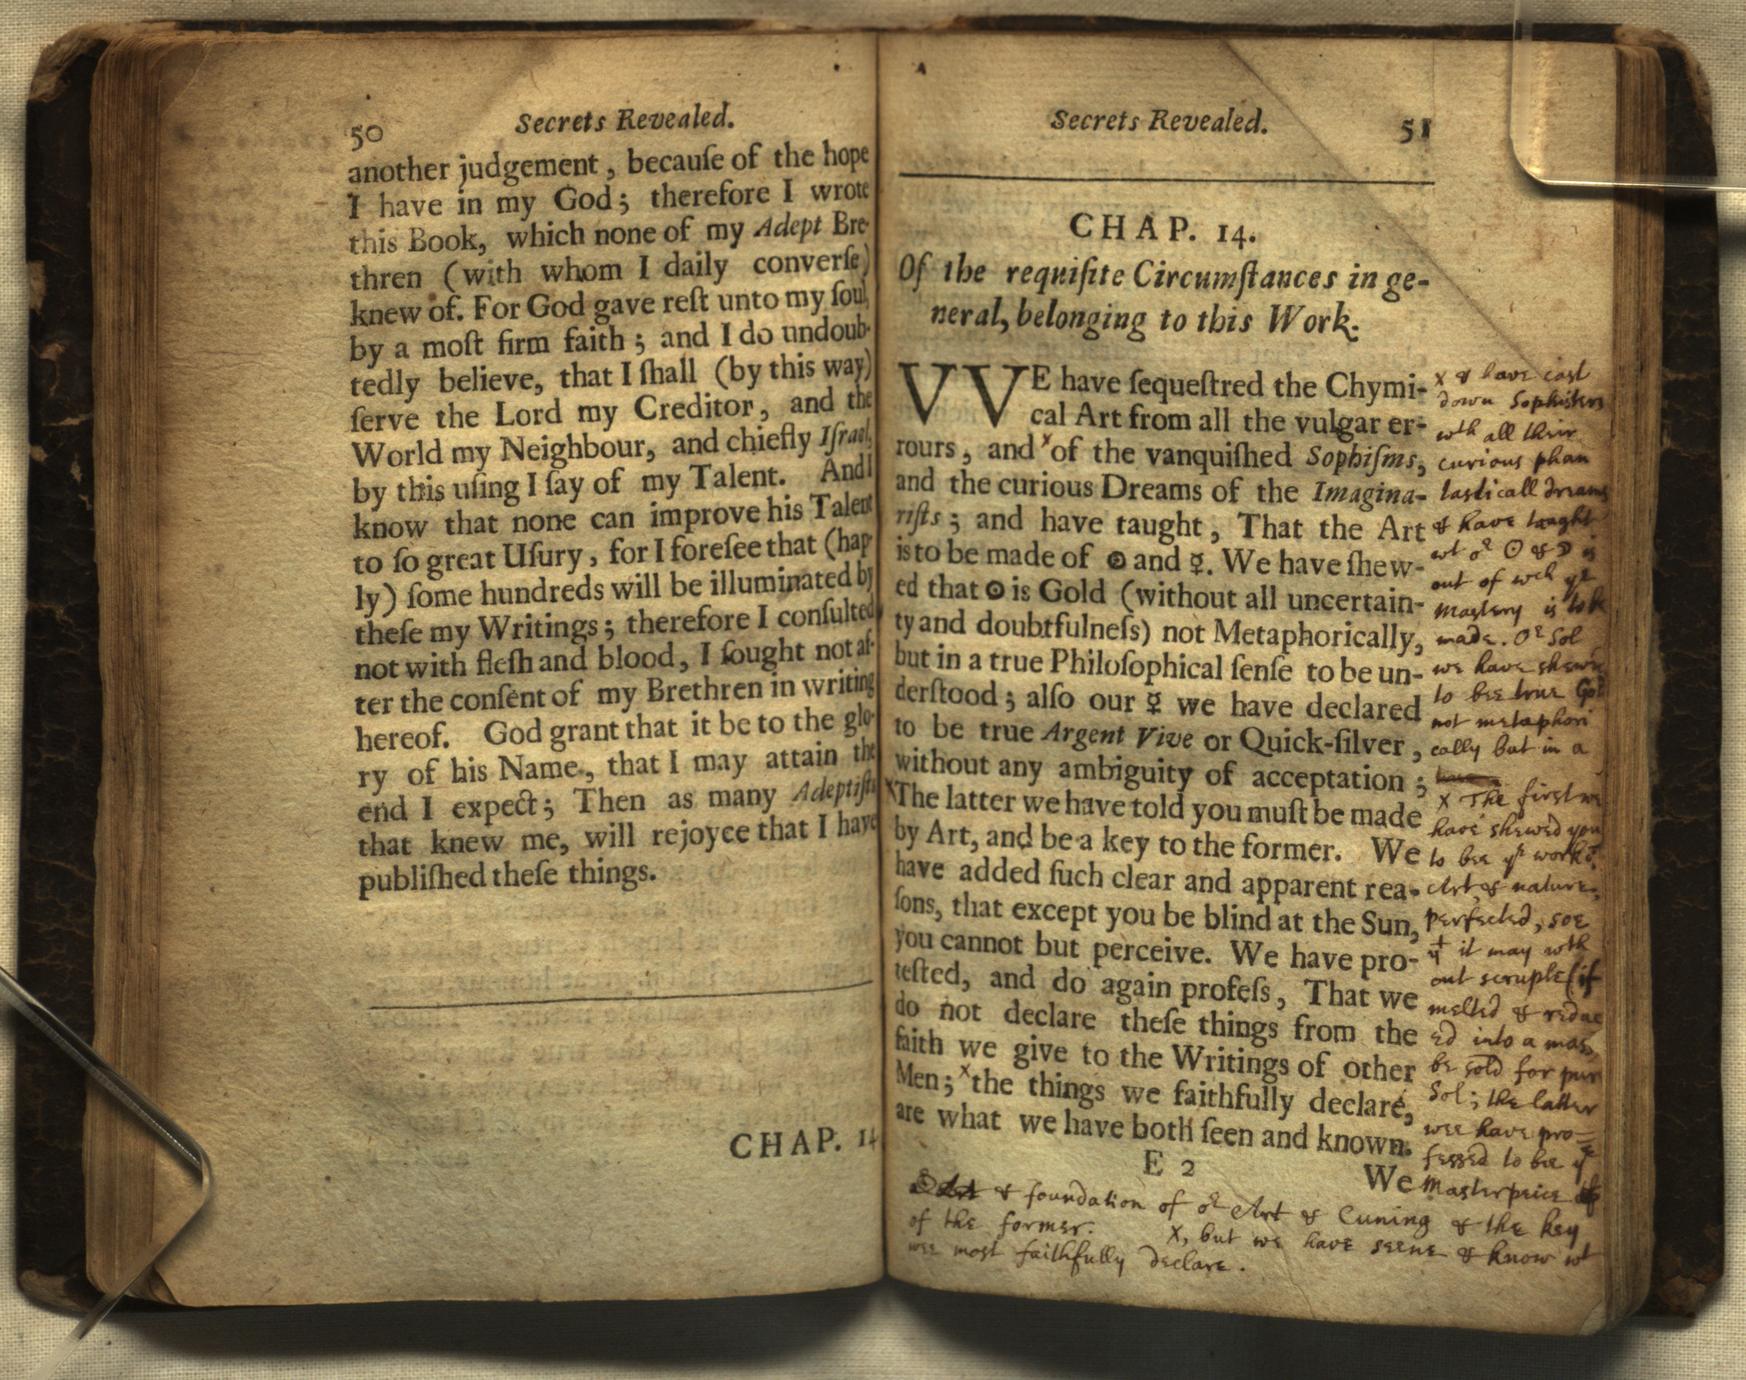 50
Secrets Revealed.
another judgement, becauſe of the hope
I have in my God; therefore I wrote
this Book, which none of my Adept Bre-
thren (with whom I daily converſe)
knew of. For God gave reſt unto my ſoul,
by a moſt firm faith; and I do undoub-
tedly believe, that I ſhall (by this way)
ſerve the Lord my Creditor, and the
World my Neighbour, and chiefly Iſrael,
by this uſing I ſay of my Talent. And I
know that none can improve his Talent
to ſo great Uſury, for I foreſee that (hap-
ly) ſome hundreds will be illuminated by
theſe my Writings; therefore I conſulted
not with fleſh and blood, I ſought not af-
ter the conſent of my Brethren in writing
hereof. God grant that it be to the glo-
ry of his Name, that I may attain the
end I expect; Then as many Adeptiſts
that knew me, will rejoyce that I have
publiſhed theſe things.
CHAP. 14
Secrets Revealed.
51
CHAP. 14.
Of the requiſite Circumſtances in ge-
neral, belonging to this Work.
VVE have ſequeſtred the Chymi-
cal Art from all the vulgar er-
rours, and x of the vanquiſhed Sophiſms,
and the curious Dreams of the Imagina-
riſts; and have taught, That the Art
is to be made of ☉ and ☿. We have ſhew-
ed that ☉ is Gold (without all uncertain-
ty and doubtfulneſs) not Metaphorically,
but in a true Philoſophical ſenſe to be un-
derſtood; alſo our ☿ we have declared
to be true Argent Vive or Quick-ſilver,
without any ambiguity of acceptation;
x The latter we have told you muſt be made
by Art, and be a key to the former. We
have added ſuch clear and apparent rea-
ſons, that except you be blind at the Sun,
you cannot but perceive. We have pro-
teſted, and do again profeſs, That we
do not declare theſe things from the
faith we give to the Writings of other
Men; x the things we faithfully declare,
are what we have both ſeen and known.
E 2
We
x & have cast
down Sophisters
wth all their
curious phan
tasticall dreams
& have taught
wt or ☉ & ☽ is
out of wch ye
mastery is to be
made. Or Sol
we have shewn
to bee true Gold
not metaphori
cally but in a
x The first we
have shewed you
to bee ye worke
Art & nature
perfected, soe
yt it may wth
out scruple (if
melted & reduc
ed into a mass
be sold for pure
Sol; the latter
wee have pro=
fessed to bee ye
Masterpeice
& foundation of or Art & Cuning & the key
of the former. x, but we have seene & know wt
wee most faithfully declare.